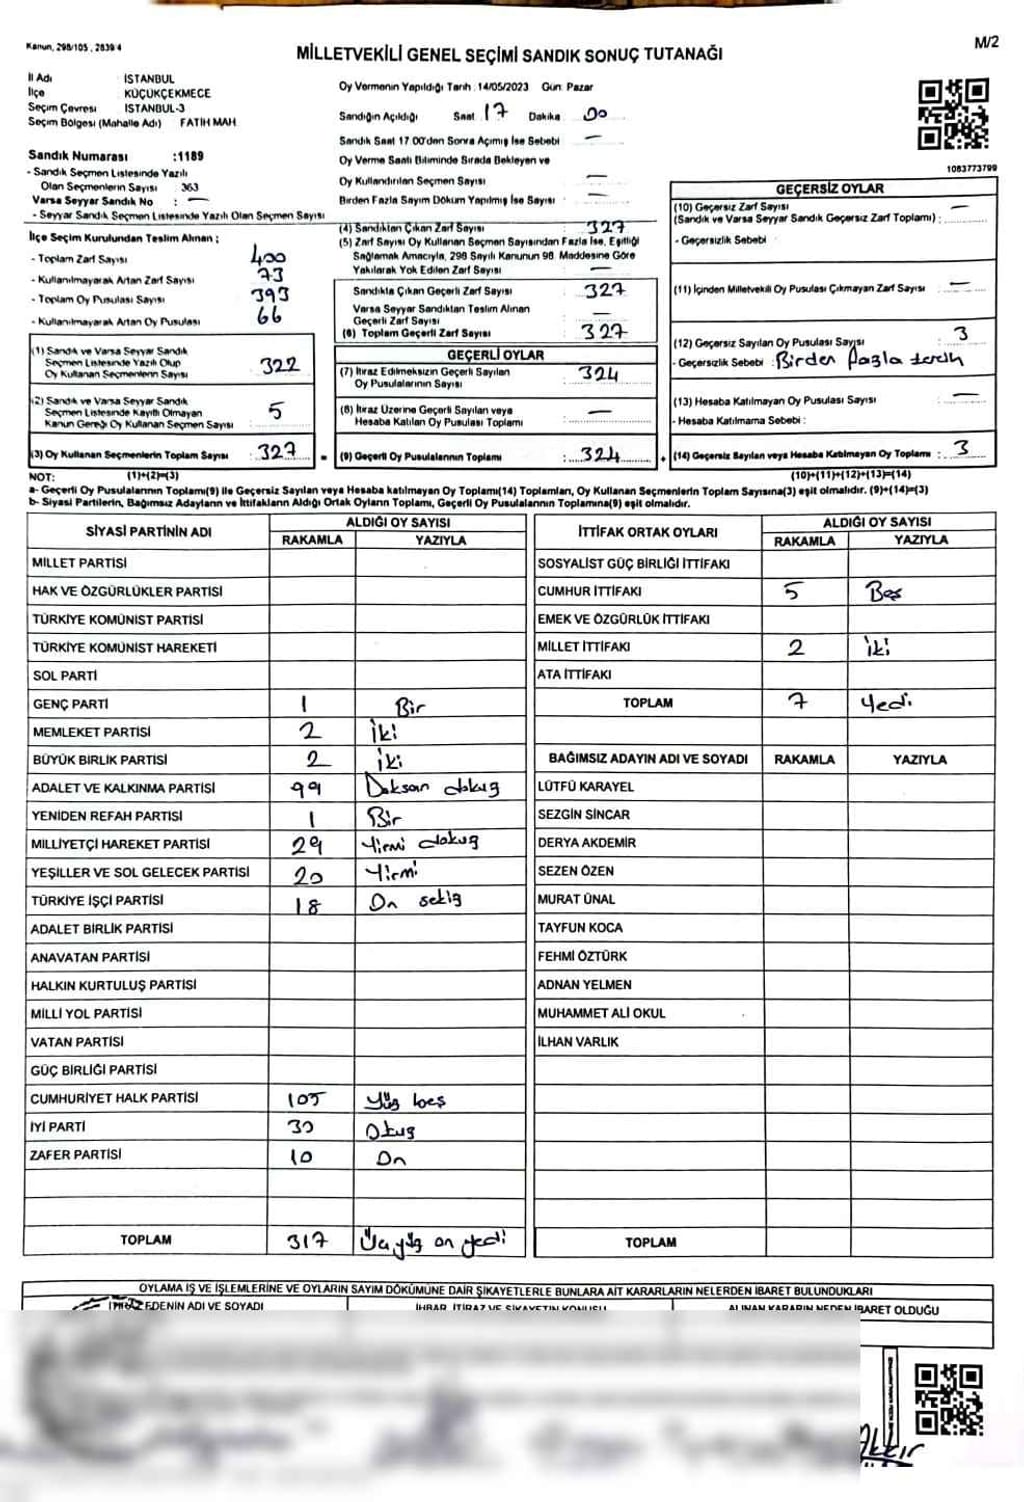 Kanun, 298/105, 2839/4
MİLLETVEKİLİ GENEL SEÇİMİ SANDIK SONUÇ TUTANAĞI
M/2
İl Adı : İSTANBUL
İlçe : KÜÇÜKÇEKMECE
Seçim Çevresi : İSTANBUL-3
Seçim Bölgesi (Mahalle Adı) : FATİH MAH
Sandık Numarası :1189
- Sandık Seçmen Listesinde Yazılı
Olan Seçmenlerin Sayısı : 363
Varsa Seyyar Sandık No : —
- Seyyar Sandık Seçmen Listesinde Yazılı Olan Seçmen Sayısı
Oy Vermenin Yapıldığı Tarih : 14/05/2023 Gün: Pazar
Sandığın Açıldığı Saat : 17 Dakika : 00
Sandık Saat 17.00'den Sonra Açımış İse Sebebi : —
Oy Verme Saati Bitiminde Sırada Bekleyen ve
Oy Kullandırılan Seçmen Sayısı : —
Birden Fazla Sayım Döküm Yapılmış İse Sayısı : —
1083773799
İlçe Seçim Kurulundan Teslim Alınan ;
- Toplam Zarf Sayısı : 400
- Kullanılmayarak Artan Zarf Sayısı : 73
- Toplam Oy Pusulası Sayısı : 393
- Kullanılmayarak Artan Oy Pusulası : 66
(1) Sandık ve Varsa Seyyar Sandık
Seçmen Listesinde Yazılı Olup
Oy Kullanan Seçmenlerin Sayısı : 322
(2) Sandık ve Varsa Seyyar Sandık
Seçmen Listesinde Kayıtlı Olmayan
Kanun Gereği Oy Kullanan Seçmen Sayısı : 5
(3) Oy Kullanan Seçmenlerin Toplam Sayısı : 327
(4) Sandıktan Çıkan Zarf Sayısı : 327
(5) Zarf Sayısı Oy Kullanan Seçmen Sayısından Fazla İse, Eşitliği
Sağlamak Amacıyla, 298 Sayılı Kanunun 98. Maddesine Göre
Yakılarak Yok Edilen Zarf Sayısı : —
Sandıkta Çıkan Geçerli Zarf Sayısı : 327
Varsa Seyyar Sandıktan Teslim Alınan
Geçerli Zarf Sayısı : —
(6) Toplam Geçerli Zarf Sayısı : 327
GEÇERLİ OYLAR
(7) İtiraz Edilmeksizin Geçerli Sayılan
Oy Pusulalarının Sayısı : 324
(8) İtiraz Üzerine Geçerli Sayılan veya
Hesaba Katılan Oy Pusulası Toplamı : —
= (9) Geçerli Oy Pusulalarının Toplamı : 324
GEÇERSİZ OYLAR
(10) Geçersiz Zarf Sayısı
(Sandık ve Varsa Seyyar Sandık Geçersiz Zarf Toplamı) : —
- Geçersizlik Sebebi :
(11) İçinden Milletvekili Oy Pusulası Çıkmayan Zarf Sayısı : —
(12) Geçersiz Sayılan Oy Pusulası Sayısı : 3
- Geçersizlik Sebebi : Birden fazla tercih
(13) Hesaba Katılmayan Oy Pusulası Sayısı : —
- Hesaba Katılmama Sebebi :
+ (14) Geçersiz Sayılan veya Hesaba Katılmayan Oy Toplamı : 3
NOT: (1)+(2)=(3) (10)+(11)+(12)+(13)=(14)
a- Geçerli Oy Pusulalarının Toplamı(9) ile Geçersiz Sayılan veya Hesaba katılmayan Oy Toplamı(14) Toplamları, Oy Kullanan Seçmenlerin Toplam Sayısına(3) eşit olmalıdır. (9)+(14)=(3)
b- Siyasi Partilerin, Bağımsız Adayların ve İttifakların Aldığı Ortak Oyların Toplamı, Geçerli Oy Pusulalarının Toplamına(9) eşit olmalıdır.
SİYASİ PARTİNİN ADI ALDIĞI OY SAYISI
RAKAMLA YAZIYLA
MİLLET PARTİSİ
HAK VE ÖZGÜRLÜKLER PARTİSİ
TÜRKİYE KOMÜNİST PARTİSİ
TÜRKİYE KOMÜNİST HAREKETİ
SOL PARTİ
GENÇ PARTİ 1 Bir
MEMLEKET PARTİSİ 2 İki
BÜYÜK BİRLİK PARTİSİ 2 İki
ADALET VE KALKINMA PARTİSİ 99 Doksan dokuz
YENİDEN REFAH PARTİSİ 1 Bir
MİLLİYETÇİ HAREKET PARTİSİ 29 Yirmi dokuz
YEŞİLLER VE SOL GELECEK PARTİSİ 20 Yirmi
TÜRKİYE İŞÇİ PARTİSİ 18 On sekiz
ADALET BİRLİK PARTİSİ
ANAVATAN PARTİSİ
HALKIN KURTULUŞ PARTİSİ
MİLLİ YOL PARTİSİ
VATAN PARTİSİ
GÜÇ BİRLİĞİ PARTİSİ
CUMHURİYET HALK PARTİSİ 105 Yüz beş
İYİ PARTİ 30 Otuz
ZAFER PARTİSİ 10 On
TOPLAM 317 Üçyüz on yedi
İTTİFAK ORTAK OYLARI ALDIĞI OY SAYISI
RAKAMLA YAZIYLA
SOSYALİST GÜÇ BİRLİĞİ İTTİFAKI
CUMHUR İTTİFAKI 5 Beş
EMEK VE ÖZGÜRLÜK İTTİFAKI
MİLLET İTTİFAKI 2 İki
ATA İTTİFAKI
TOPLAM 7 Yedi
BAĞIMSIZ ADAYIN ADI VE SOYADI RAKAMLA YAZIYLA
LÜTFÜ KARAYEL
SEZGİN SİNCAR
DERYA AKDEMİR
SEZEN ÖZEN
MURAT ÜNAL
TAYFUN KOCA
FEHMİ ÖZTÜRK
ADNAN YELMEN
MUHAMMET ALİ OKUL
İLHAN VARLIK
TOPLAM
OYLAMA İŞ VE İŞLEMLERİNE VE OYLARIN SAYIM DÖKÜMÜNE DAİR ŞİKAYETLERLE BUNLARA AİT KARARLARIN NELERDEN İBARET BULUNDUKLARI
EDENİN ADI VE SOYADI İHBAR, İTİRAZ VE ŞİKAYETİN KONUSU ALINAN KARARIN NEDEN İBARET OLDUĞU